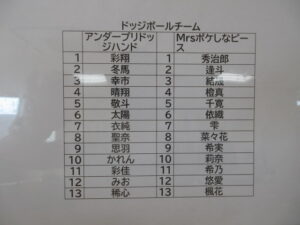 ドッジボールチーム
アンダーブリドッジハンド Mrsポケしなピース
1 彩翔 1 秀治郎
2 冬馬 2 逢斗
3 幸市 3 結晟
4 晴翔 4 橙真
5 敬斗 5 千寛
6 太陽 6 依織
7 衣純 7 雫
8 聖奈 8 菜々花
9 思羽 9 希実
10 かれん 10 莉奈
11 彩佳 11 希乃
12 みお 12 悠愛
13 稀心 13 楓花